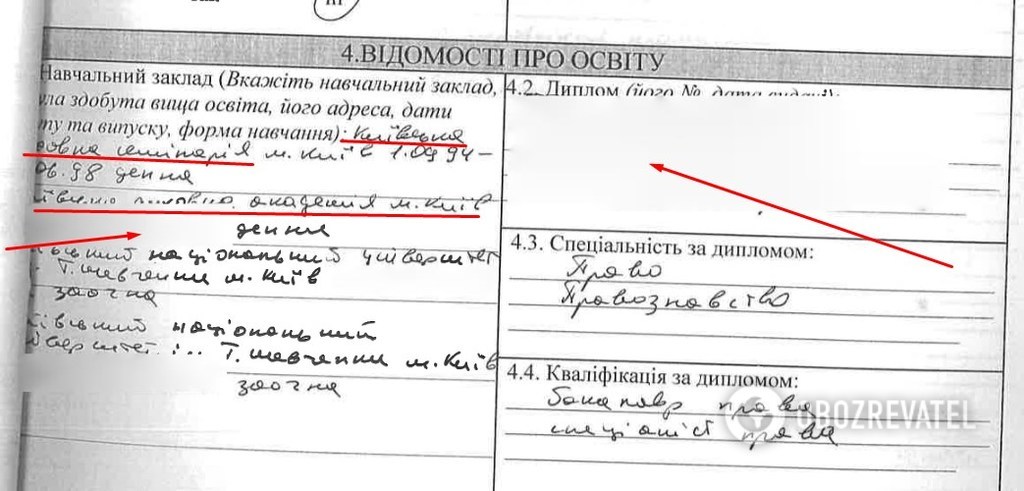 ІІІ
4.ВІДОМОСТІ ПРО ОСВІТУ
Навчальний заклад (Вкажіть навчальний заклад,
ула здобута вища освіта, його адреса, дати
ту та випуску, форма навчання): Київська
овна семінарія м. Київ 1.09.94–
06.98 денна
академія м. Київ
денна
національний університет
Т. Шевченка м. Київ
заочна
національний
Т. Шевченка м. Київ
заочна
4.2. Диплом (його №, дата видачі):
4.3. Спеціальність за дипломом:
Право
Правознавство
4.4. Кваліфікація за дипломом:
бакалавр права
спеціаліст права
OBOZREVATEL